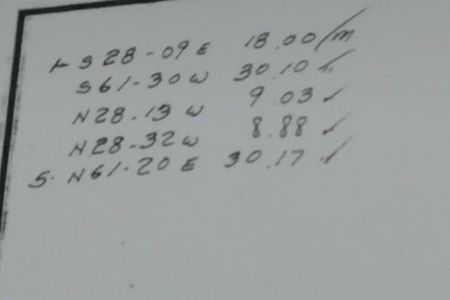 1 S 28-09 E 18.00/m
S 61-30 W 30.10 ✓
N 28-13 W 9.03 ✓
N 28-32 W 8.88 ✓
5. N 61-20 E 30.17 ✓